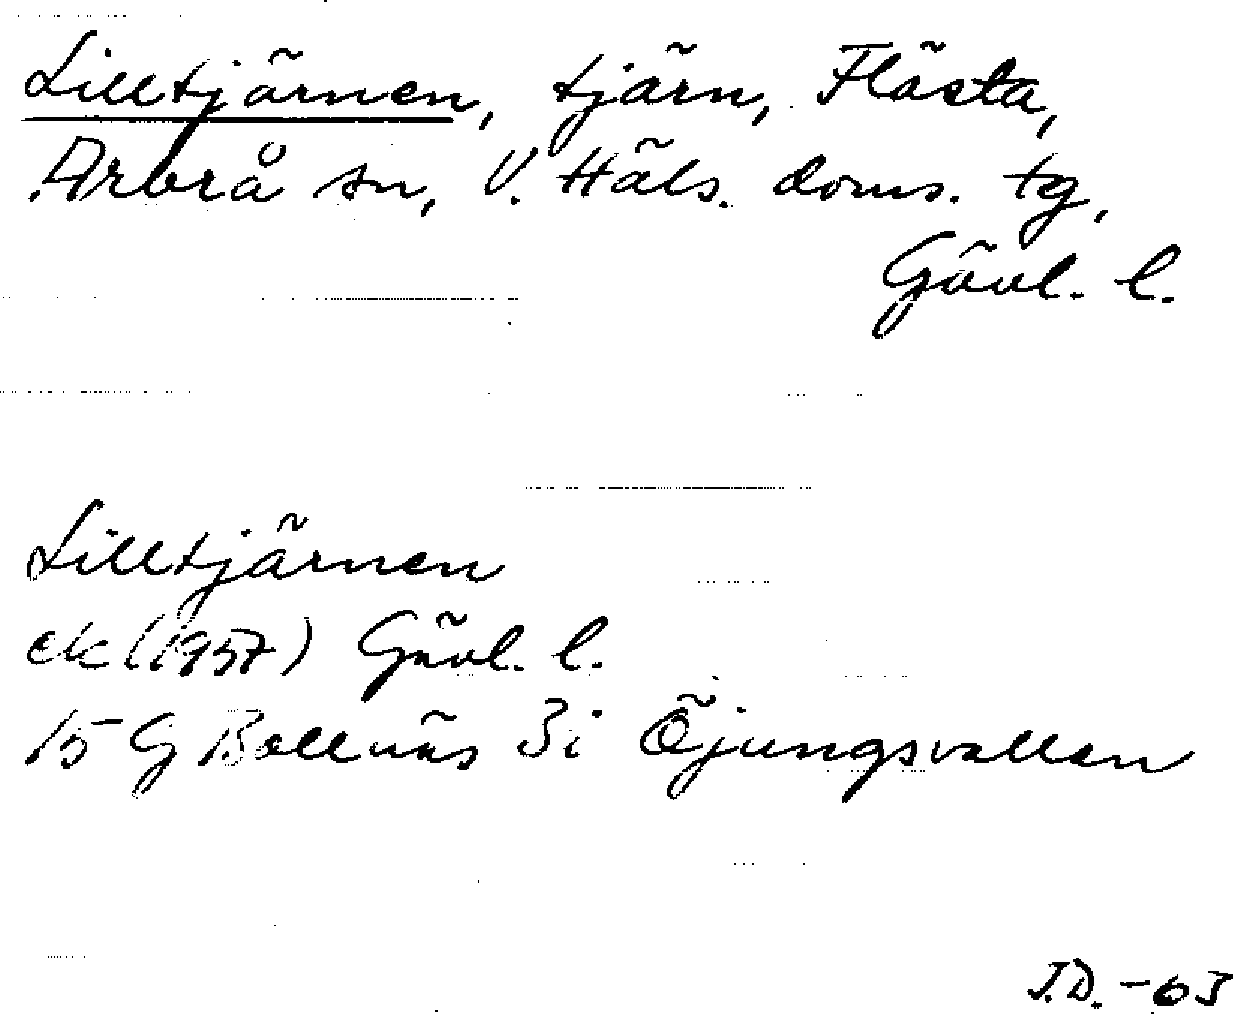 Lilltjärnen, tjärn, Flästa,
Arbrå sn, V. Häls. doms. tg,
Gävl. l.
Lilltjärnen
ek (1957) Gävl. l.
15 G Bollnäs 3i Öjungsvallen
J.D. -63